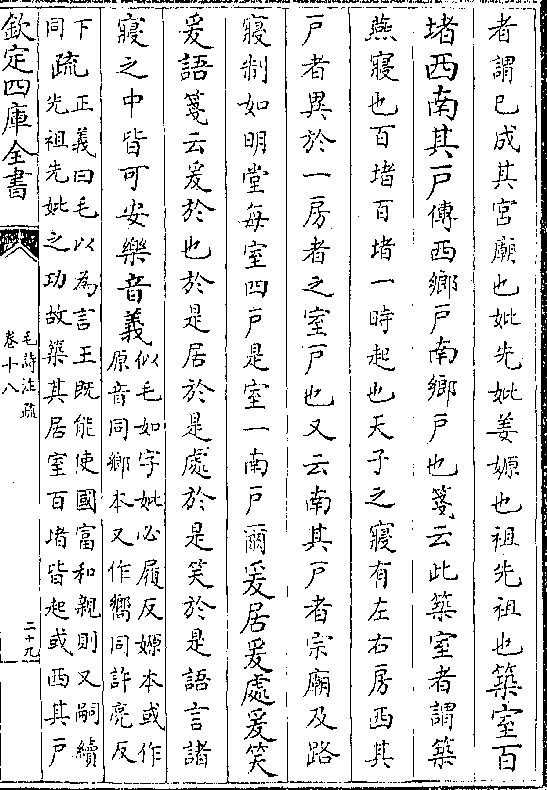 者謂已成其宮廟也妣先妣姜嫄也祖先祖也築室百
堵西南其戸傳西鄉戸南鄉戸也箋云此築室者謂築
燕寢也百堵百堵一時起也天子之寢有左右房西其
戸者異於一房者之室戸也又云南其戸者宗廟及路
寢制如明堂每室四戸是室一南戸爾爰居爰處爰笑
爰語箋云爰於也於是居於是處於是笑於是語言諸
寢之中皆可安樂音義似毛如字妣必履反嫄本或作
原音同鄉本又作嚮同許亮反
下
同疏正義曰毛以為言王既能使國富和親則又嗣續
先祖先妣之功故築其居室百堵皆起或西其戸
欽定四庫全書
毛詩注疏
卷十八
二十九